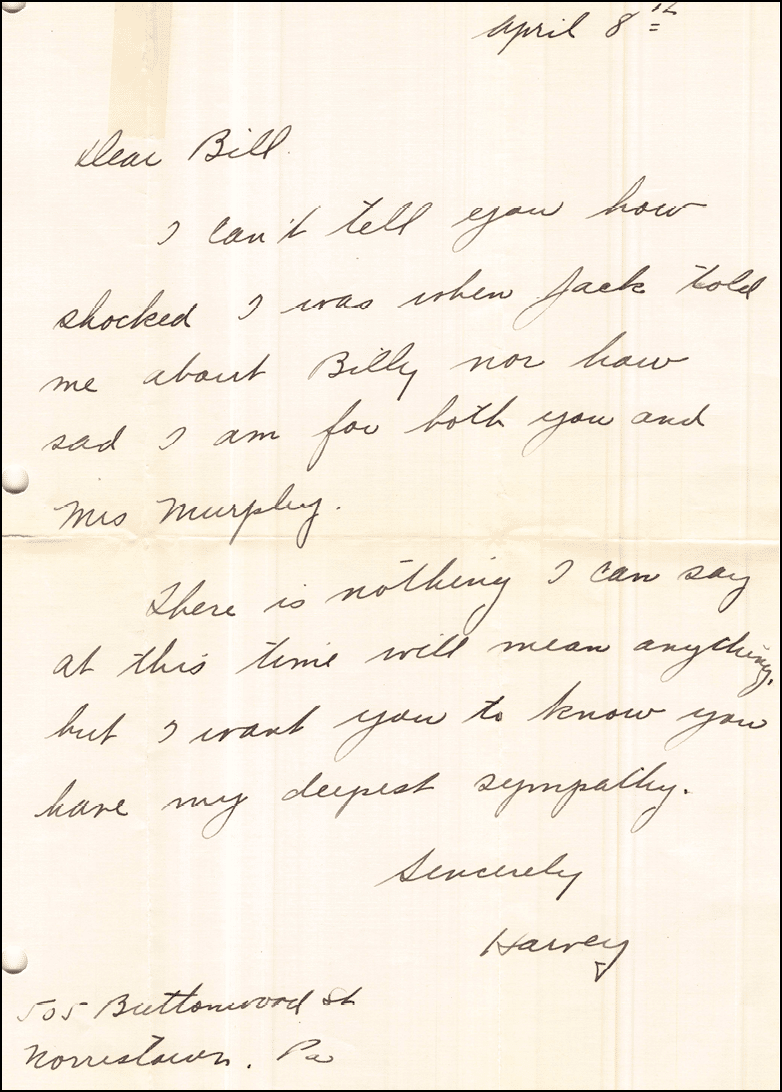 April 8th
Dear Bill
I can't tell you how
shocked I was when Jack told
me about Billy nor how
sad I am for both you and
Mrs Murphy.
There is nothing I can say
at this time will mean anything,
but I want you to know you
have my deepest sympathy.
Sincerely
Harvey
505 Buttonwood St
Norristown, Pa